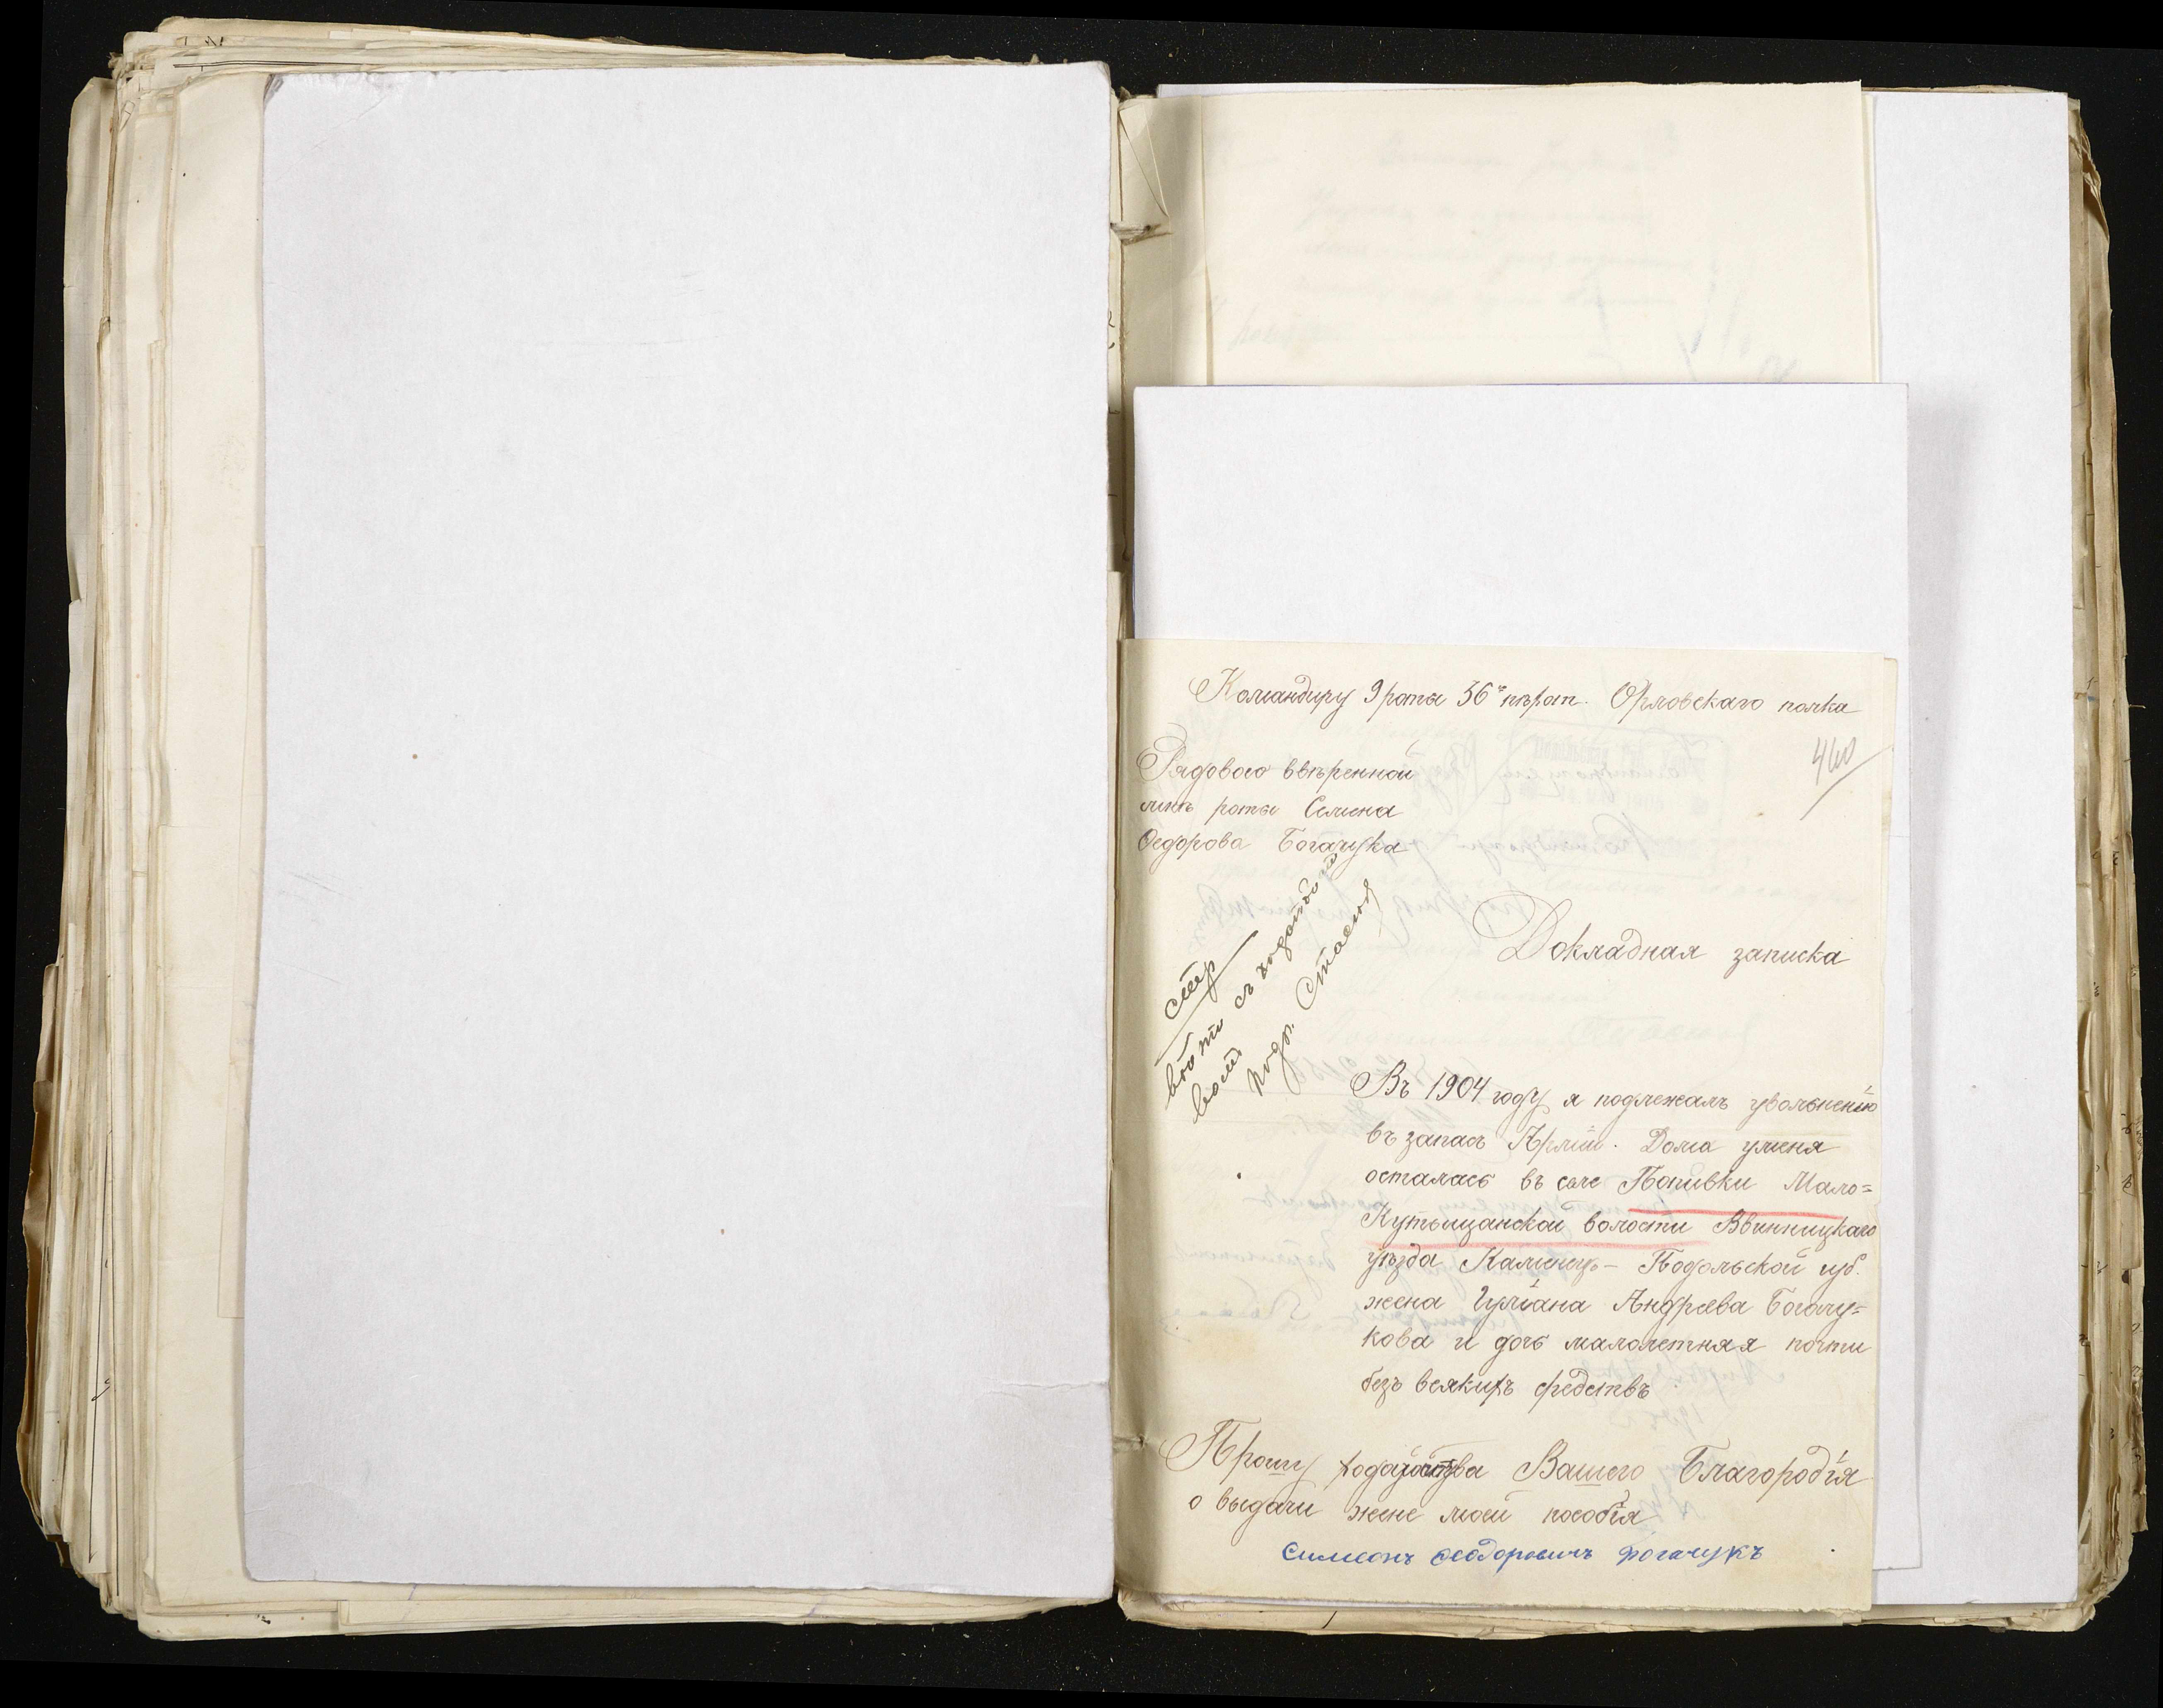 Командиру 9 роты 36го пѣхот. Орловскаго полка
460
Рядового ввѣренной
мнѣ роты Семена
Федорова Богачука
Докладная записка
съ ходатайс
подп.
Въ 1904 году я подлежалъ увольненію
въ запасъ Арміи. Дома уменя
осталась въ селе Попивки Мало=
Кутыщанской волости Ввинницкаго
уѣзда Каменец- Подольской губ.
жена Иуліана Андреева Богачу=
кова и дочь малолетняя почти
безъ всякихъ средствъ
Прошу ходатайства Вашего Благородія
о выдачи жене моей пособія
Симеонъ Феодоровичъ Богачукъ